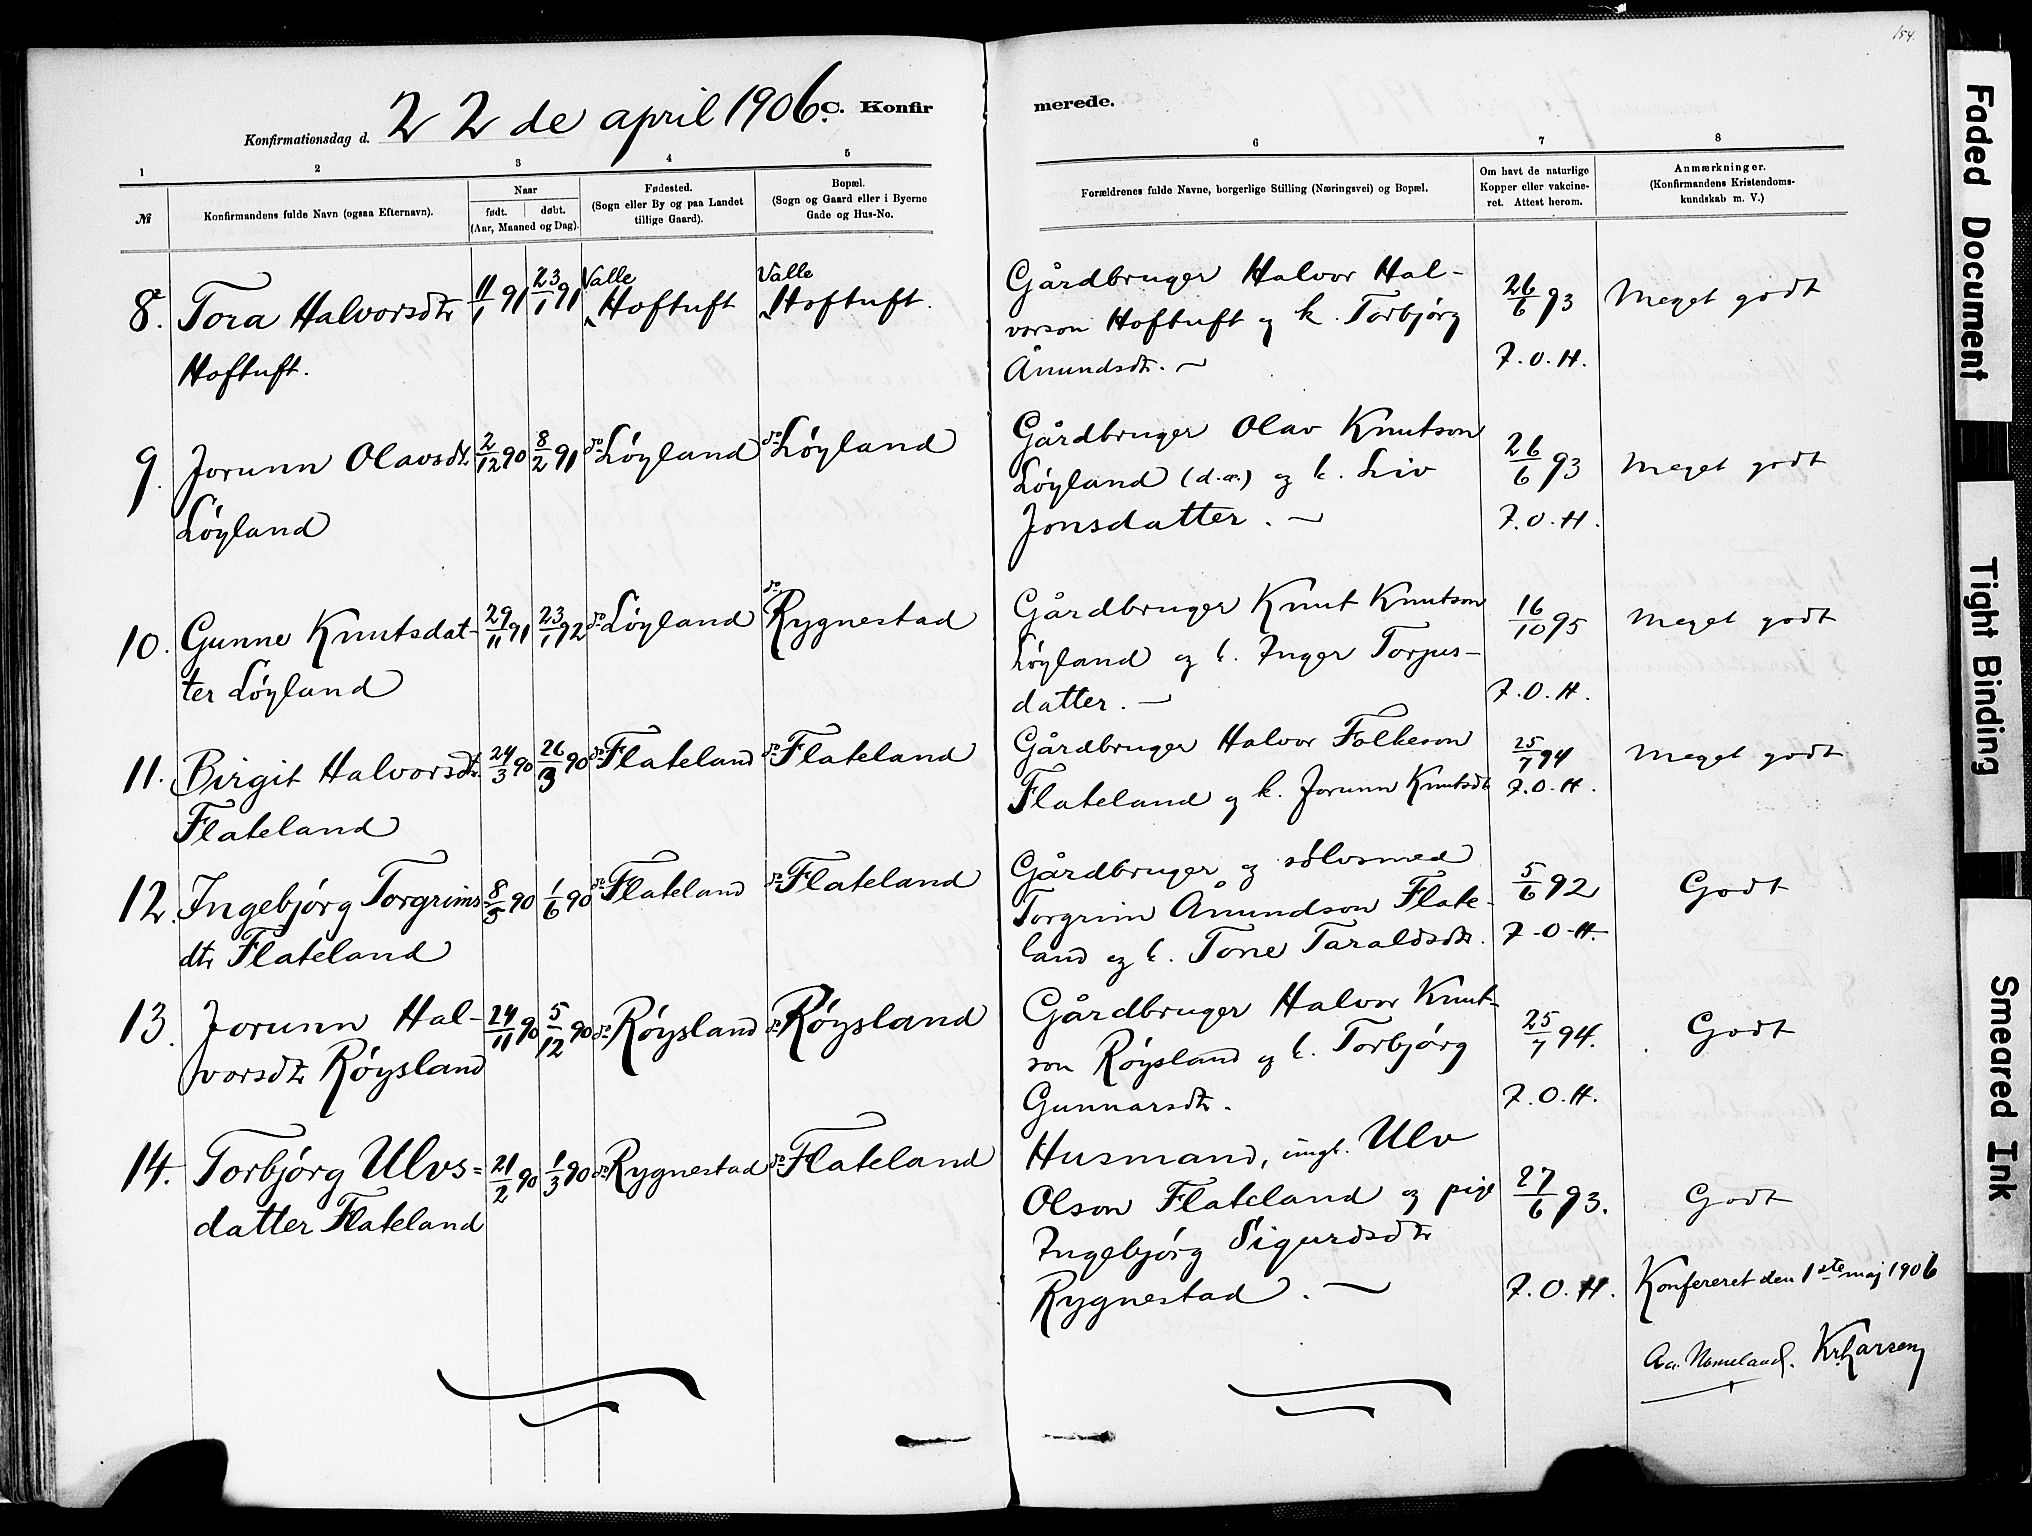 154.
Konfirmationsdag d. 22de april 1906. C. Konfirmerede.
1 2 3 4 5 6 7 8
№ Konfirmandens fulde Navn (ogsaa Efternavn). Naar født. døbt. (Aar, Maaned og Dag). Fødested. (Sogn eller By og paa Landet tillige Gaard). Bopæl. (Sogn og Gaard eller i Byerne Gade og Hus-No. Forældrenes fulde Navne, borgerlige Stilling (Næringsvei) og Bopæl. Om havt de naturlige Kopper eller vakcineret. Attest herom. Anmærkninger. (Konfirmandens Kristendomskundskab m. V.)
8. Tora Halvorsdtr 11/1 91 23/1 91 Valle Hoftuft Valle Hoftuft. Gårdbruger Halvor Hal- 26/6 93 Meget godt
Hoftuft. vorson Hoftuft og k. Torbjørg
Ånundsdtr. — F.O.H.
9. Jorunn Olavsdtr 2/12 90 8/2 91 do Løyland do Løyland Gårdbruger Olav Knutson 26/6 93 Meget godt
Løyland Løyland (d.æ.) og k. Liv
Jonsdatter. — F.O.H.
10. Gunne Knutsdat- 29/11 91 23/1 92 do Løyland do Rygnestad Gårdbruger Knut Knutson 16/10 95 Meget godt
ter Løyland Løyland og k. Inger Torjus-
datter. — F.O.H.
11. Birgit Halvorsdtr. 24/3 90 26/3 90 do Flateland do Flateland Gårdbruger Halvor Folkeson 25/7 94 Meget godt
Flateland Flateland og k. Jorunn Knutsdtr F.O.H.
12. Ingebjørg Torgrims- 8/5 90 1/6 90 do Flateland do Flateland Gårdbruger og sølvsmed 5/6 92 Godt
dtr Flateland Torgrim Ånundson Flate-
land og k. Tone Taraldsdtr. F.O.H.
13. Jorunn Hal- 24/11 90 5/12 90 do Røysland do Røysland Gårdbruger Halvor Knut- 25/7 94. Godt
vorsdtr Røysland son Røysland og k. Torbjørg
Gunnarsdtr. F.O.H.
14. Torbjørg Ulvs= 21/2 90 1/3 90 do Rygnestad do Flateland Husmand, ungk. Ulv
datter Flateland Olson Flateland og pige 27/6 93. Godt
Ingebjørg Sigurdsdtr
Rygnestad. — F.O.H. Konfereret den 1ste maj 1906
Aa. Nomeland. Kr. Larsen
Faded Document
Tight Binding
Smeared Ink